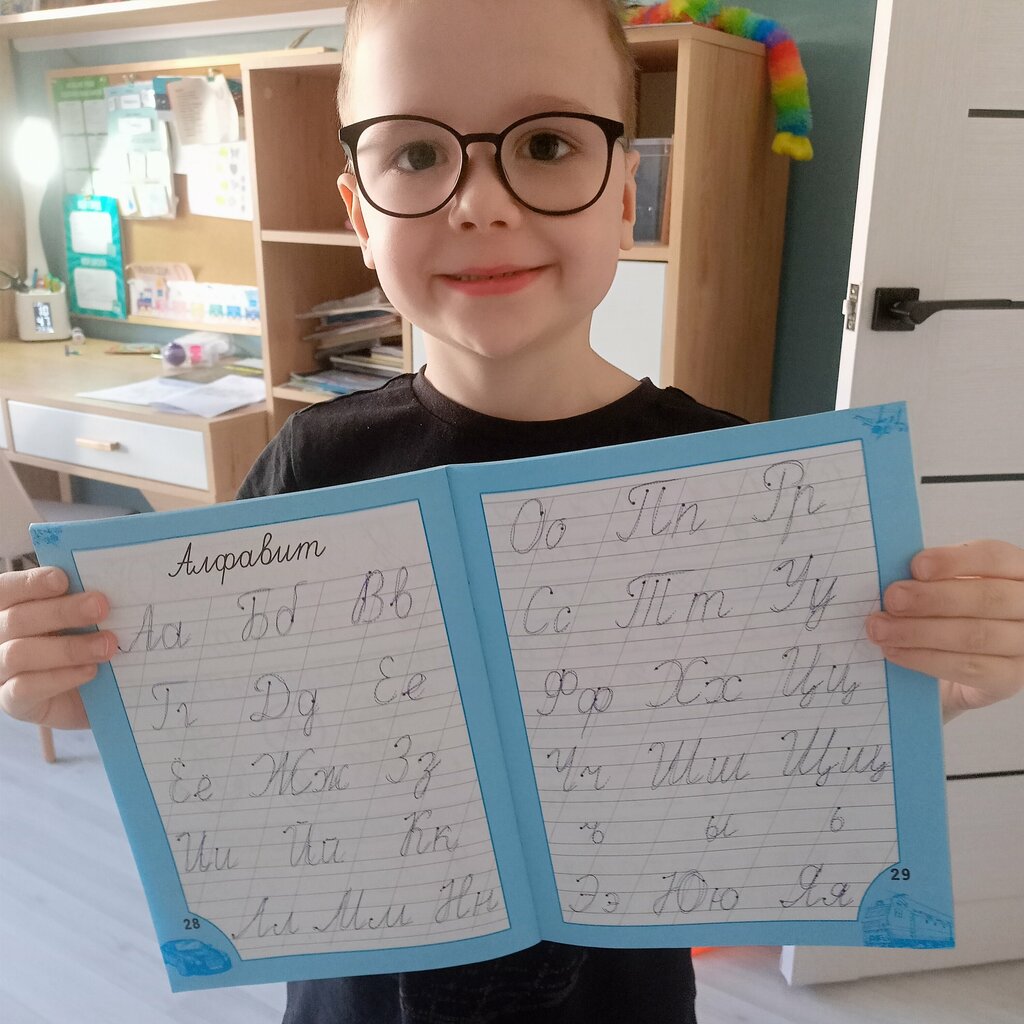 Алфавит
Аа Бб Вв
Гг Дд Ее
Ёё Жж Зз
Ии Йй Кк
Лл Мм Нн
28
Оо Пп Рр
Сс Тт Уу
Фф Хх Цц
Чч Шш Щщ
ъ ы ь
Ээ Юю Яя
29